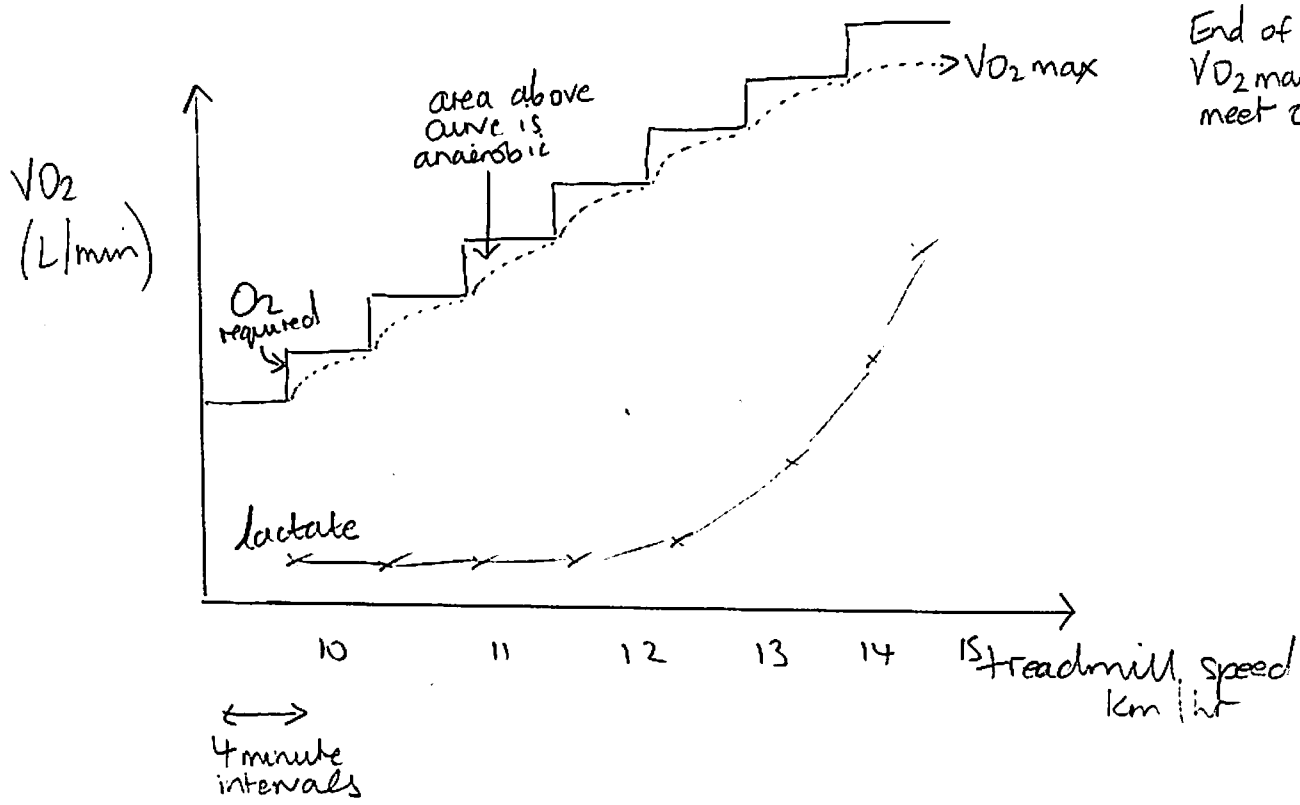 End of
VO2 ma
meet
VO2 max
area above
curve is
anaerobic
VO2
(L/min)
O2
required
lactate
10 11 12 13 14 15
treadmill speed
km/hr
4 minute
intervals